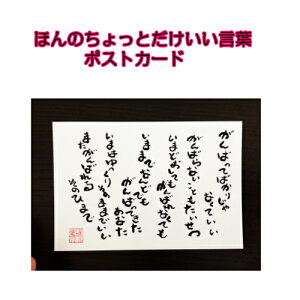 ほんのちょっとだけいい言葉
ポストカード
がんばってばかりじゃ
なくていい
がんばらないこともたいせつ
いまどうしてもがんばれなくても
いままでなんども
がんばってきたあなた
いまはゆっくりそのままでいい
またがんばれる
そのひまで